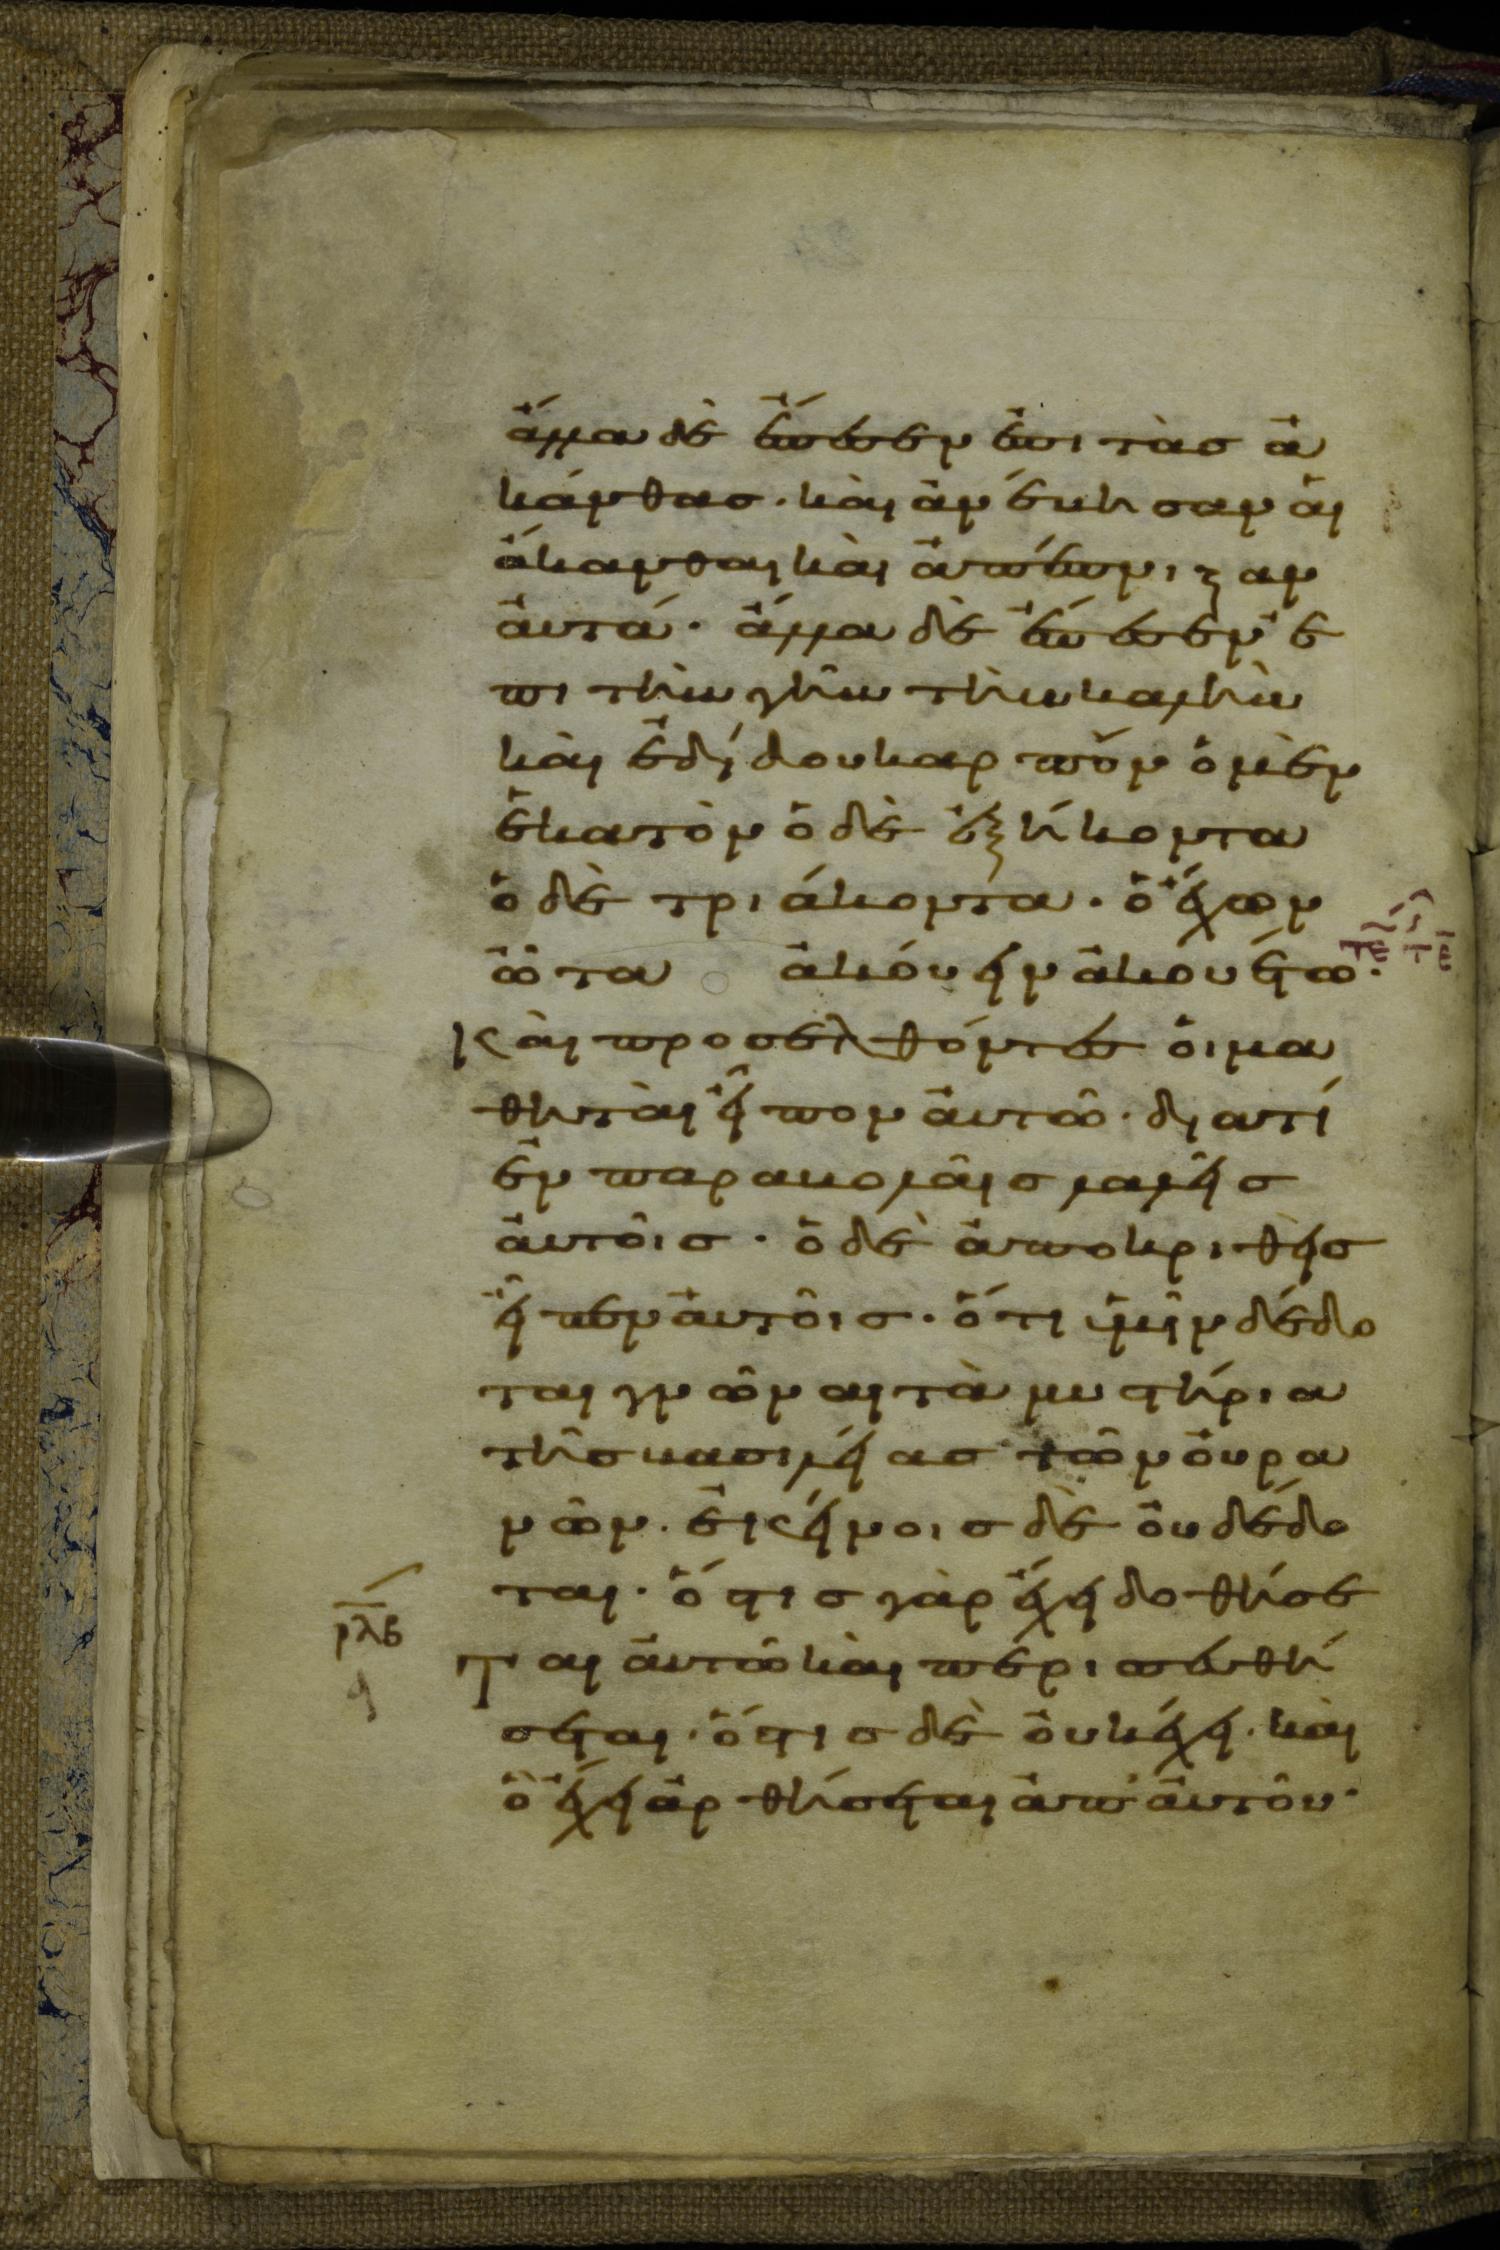 ἄλλα δὲ ἔπεσεν ἐπὶ τὰσ ἀ
κάνθασ· καὶ ἀνέβησαν αἱ
ἄκανθαι καὶ ἀπέπνιξαν
αὐτά· ἄλλα δὲ ἔπεσεν ἐ
πι τὴν γῆν τὴν καλὴν
καὶ ἐδίδου καρπὸν ὁ μὲν
ἑκατὸν ὁ δὲ ἑξήκοντα
ὁ δὲ τριάκοντα· ὁ ἔχων
ὦτα ἀκούειν ἀκουέτω·
Καὶ προσελθόντεσ οἱ μα
θηταὶ εἶπον αὐτῶ· διατί
ἐν παραβολαῖσ λαλεῖσ
αὐτοῖσ· ὁ δὲ ἀποκριθεὶσ
εἶπεν αὐτοῖσ· ὅτι ὑμῖν δέδο
ται γνῶναι τὰ μυστήρια
τῆσ βασιλείασ τῶν οὐρα
νῶν· ἐκείνοισ δὲ οὐ δέδο
ται· ὅστισ γὰρ ἔχει δοθήσε
ρλβ
Ται αὐτῶ καὶ περισσευθή
σεται· ὅστισ δὲ οὐκ ἔχει· καὶ
ὃ ἔχει ἀρθήσεται ἀπ' αὐτοῦ·